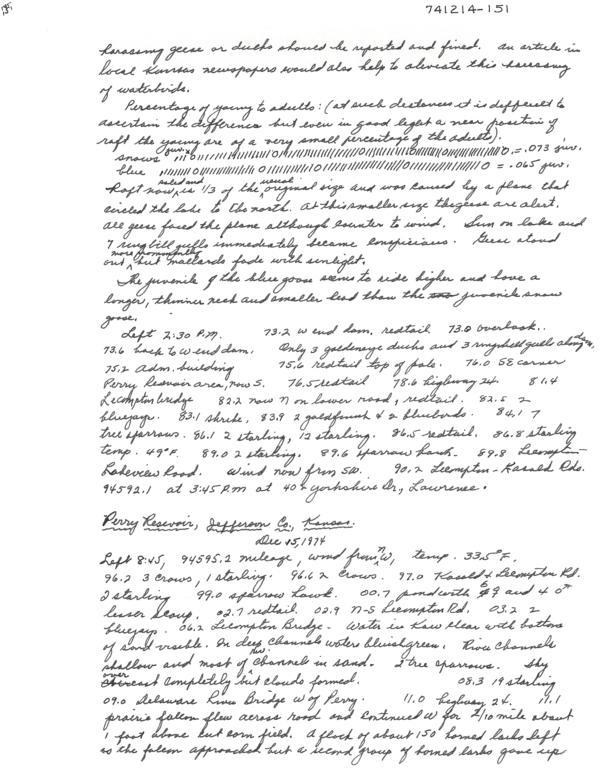 741214-151
harassing geese or ducks should be reported and fined. An article in
local Kansas newspapers would also help to aleviate this harassing
of waterbirds.
Percentage of young to adults: (at such distances it is difficult to
ascertain the difference but even in good light a near position of
raft the young are of a very small percentage of the adults).
snows juv. = .073 juv.
blue = .065 juv.
Raft now is 1/3 of the original size and was caused by a plane that
circled the lake to the north. At this smaller size the geese are alert.
All geese faced the plane although counter to wind. Sun on lake and
7 ringbill gulls immediately became conspicuous. Geese stood
out more prominently but mallards fade with sunlight.
The juvenile of the blue goose seems to ride higher and have a
longer, thinner neck and smaller head than the juvenile snow
goose.
Left 2:30 P.M. 73.2 W end dam, redtail 73.0 overlook..
73.6 back to W end dam. Only 3 goldeneye ducks and 3 ringbill gulls along dam,
75.2 Adm. building 75.6 redtail top of pole. 76.0 SE corner
Perry Resevoir area, now S. 76.5 redtail 78.6 highway 24. 81.4
Lecompton bridge 82.2 now N on lower road, redtail. 82.5 2
bluejays. 83.1 shrike, 83.9 2 goldfinch & 2 bluebirds. 84.1 7
tree sparrows. 86.1 2 starling, 12 starling. 86.5 redtail. 86.8 starling
temp. 49°F. 89.0 2 starling. 89.6 sparrow hawk. 89.8 Lecompton-
Lakeview Road. Wind now from SW. 90.2 Lecompton-Kasold Rds.
94592.1 at 3:45 P.M at 40 Yorkshire Dr., Lawrence.
Perry Resevoir, Jefferson Co., Kansas.
Dec 15, 1974
Left 8:45, 94595.2 mileage, wind from NW, temp. 33.5°F.
96.2 3 crows, 1 starling. 96.6 2 crows. 97.0 Kasold & Lecompton Rd.
2 starling 99.0 sparrow hawk. 00.7 pond with 6 ♀ and 4 ♂
lesser scaup. 02.7 redtail. 02.9 N-S Lecompton Rd. 03.2 2
bluejays. 06.2 Lecompton Bridge - Water in Kaw clear with bottom
of sand visible. In deep channels water bluishgreen. River channels
shallow and most of channel in sand. 2 tree sparrows. Sky
overcast completely but clouds formed. 08.3 19 starling
09.0 Delaware River Bridge W of Perry. 11.0 highway 24. 11.1
prairie falcon flew across road and continued W for 2/10 mile about
1 foot above cut corn field. A flock of about 150 horned larks left
as the falcon approached but a second group of horned larks gave up